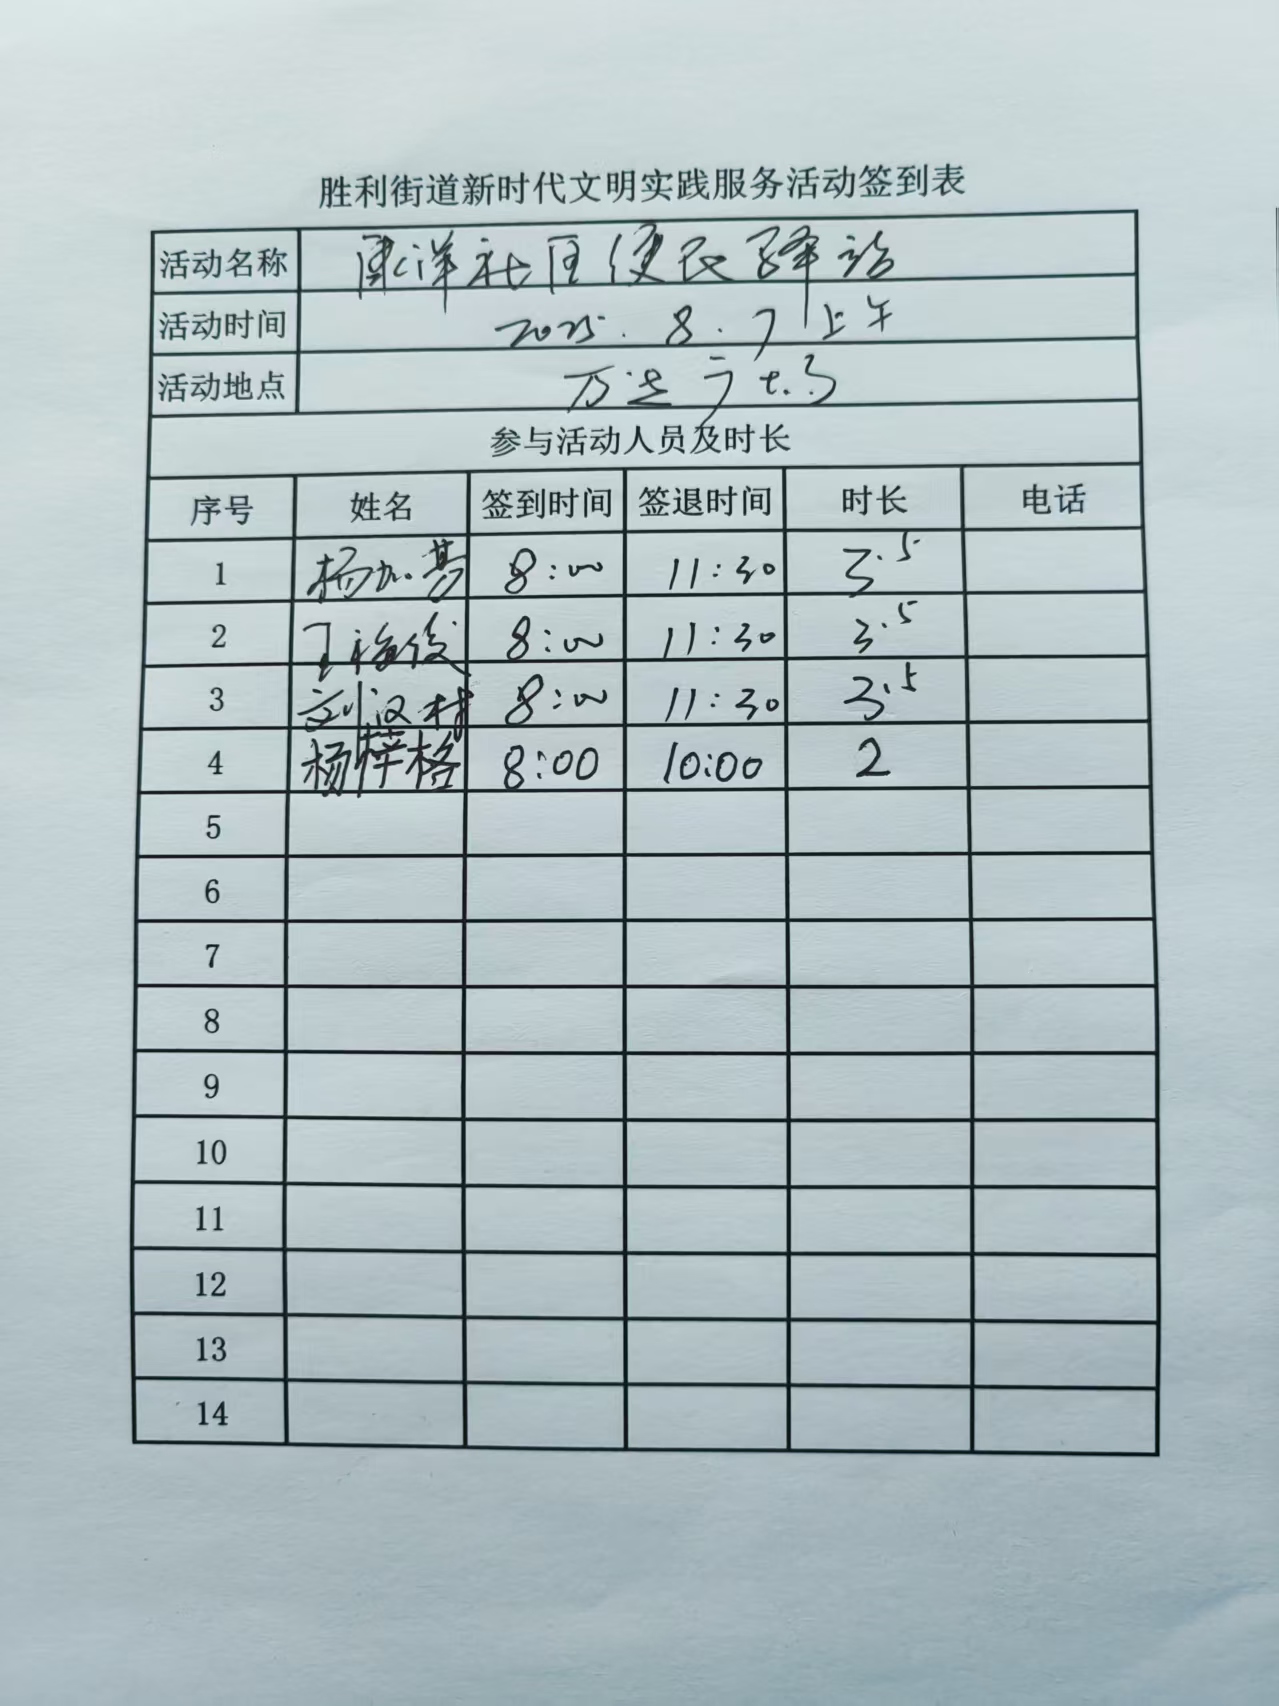 胜利街道新时代文明实践服务活动签到表
活动名称 南洋社区便民驿站
活动时间 2025.8.7上午
活动地点 万达广场
参与活动人员及时长
序号 姓名 签到时间 签退时间 时长 电话
1 杨 8:00 11:30 3.5
2 王海俊 8:00 11:30 3.5
3 刘汉村 8:00 11:30 3.5
4 杨梓格 8:00 10:00 2
5
6
7
8
9
10
11
12
13
14